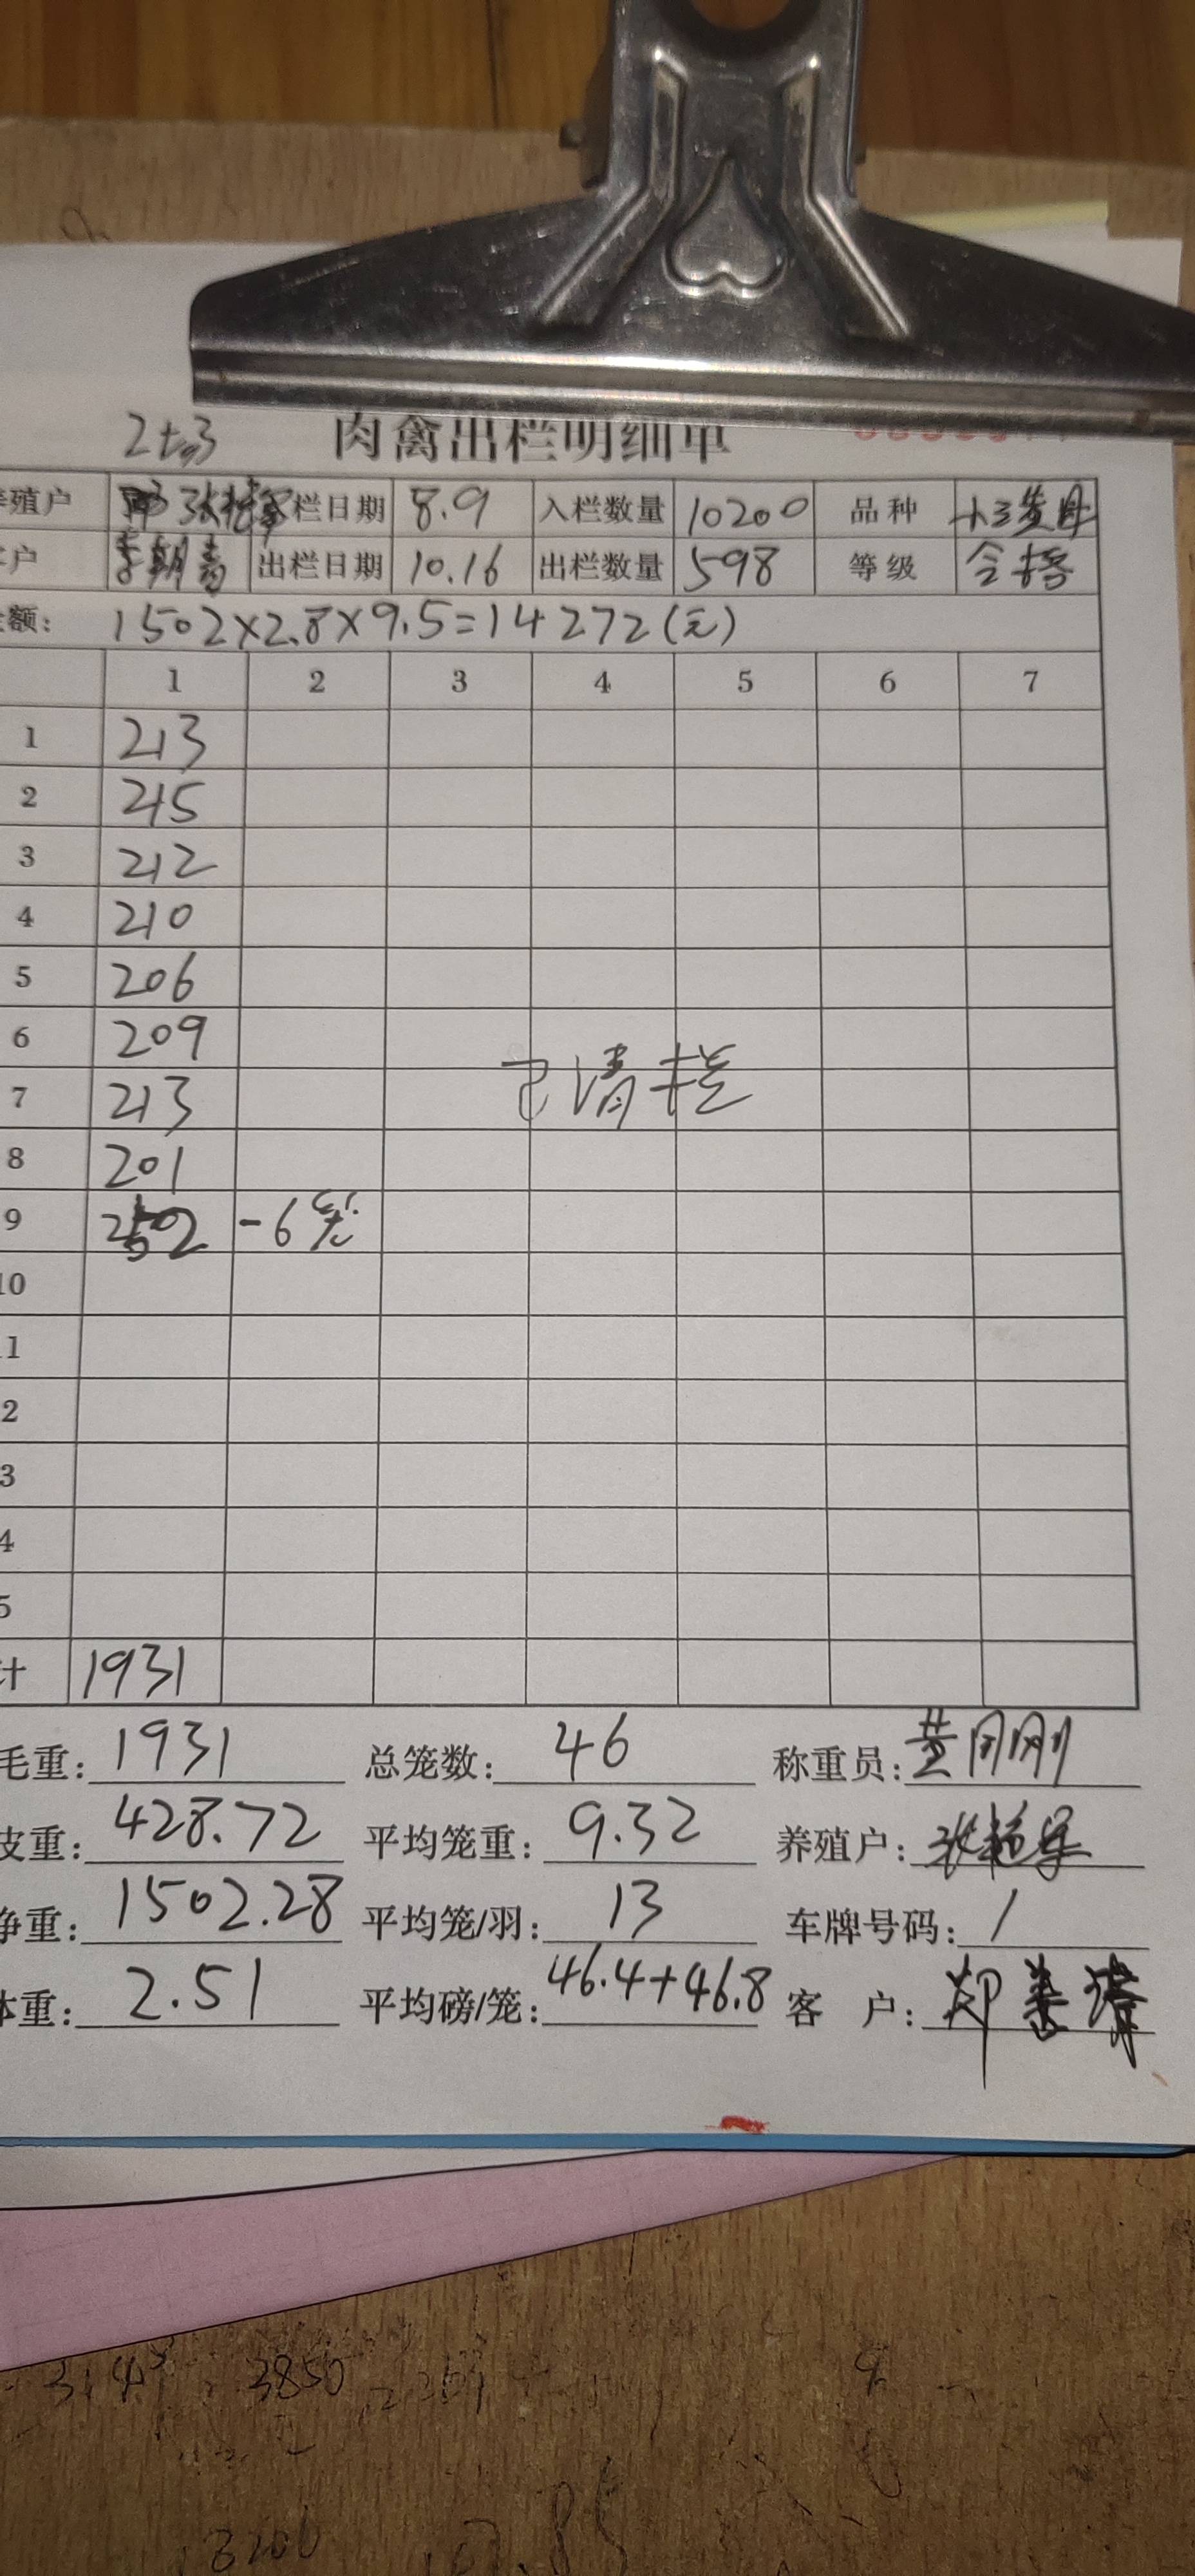 2# 3 肉禽出栏明细单
殖户 栏日期 8.9 入栏数量 10200 品种
户 出栏日期 10.16 出栏数量 598 等级 合格
额: 1502×2.8×9.5=14272(元)
1 2 3 4 5 6 7
1 213
2 215
3 212
4 210
5 206
6 209
7 213
8 201
9 252 -6笼
已清栏
10
1
2
3
4
5
计 1931
毛重: 1931 总笼数: 46 称重员:
皮重: 428.72 平均笼重: 9.32 养殖户:
净重: 1502.28 平均笼/羽: 13 车牌号码: /
体重: 2.51 平均磅/笼: 46.4+46.8 客 户:
3850
3200